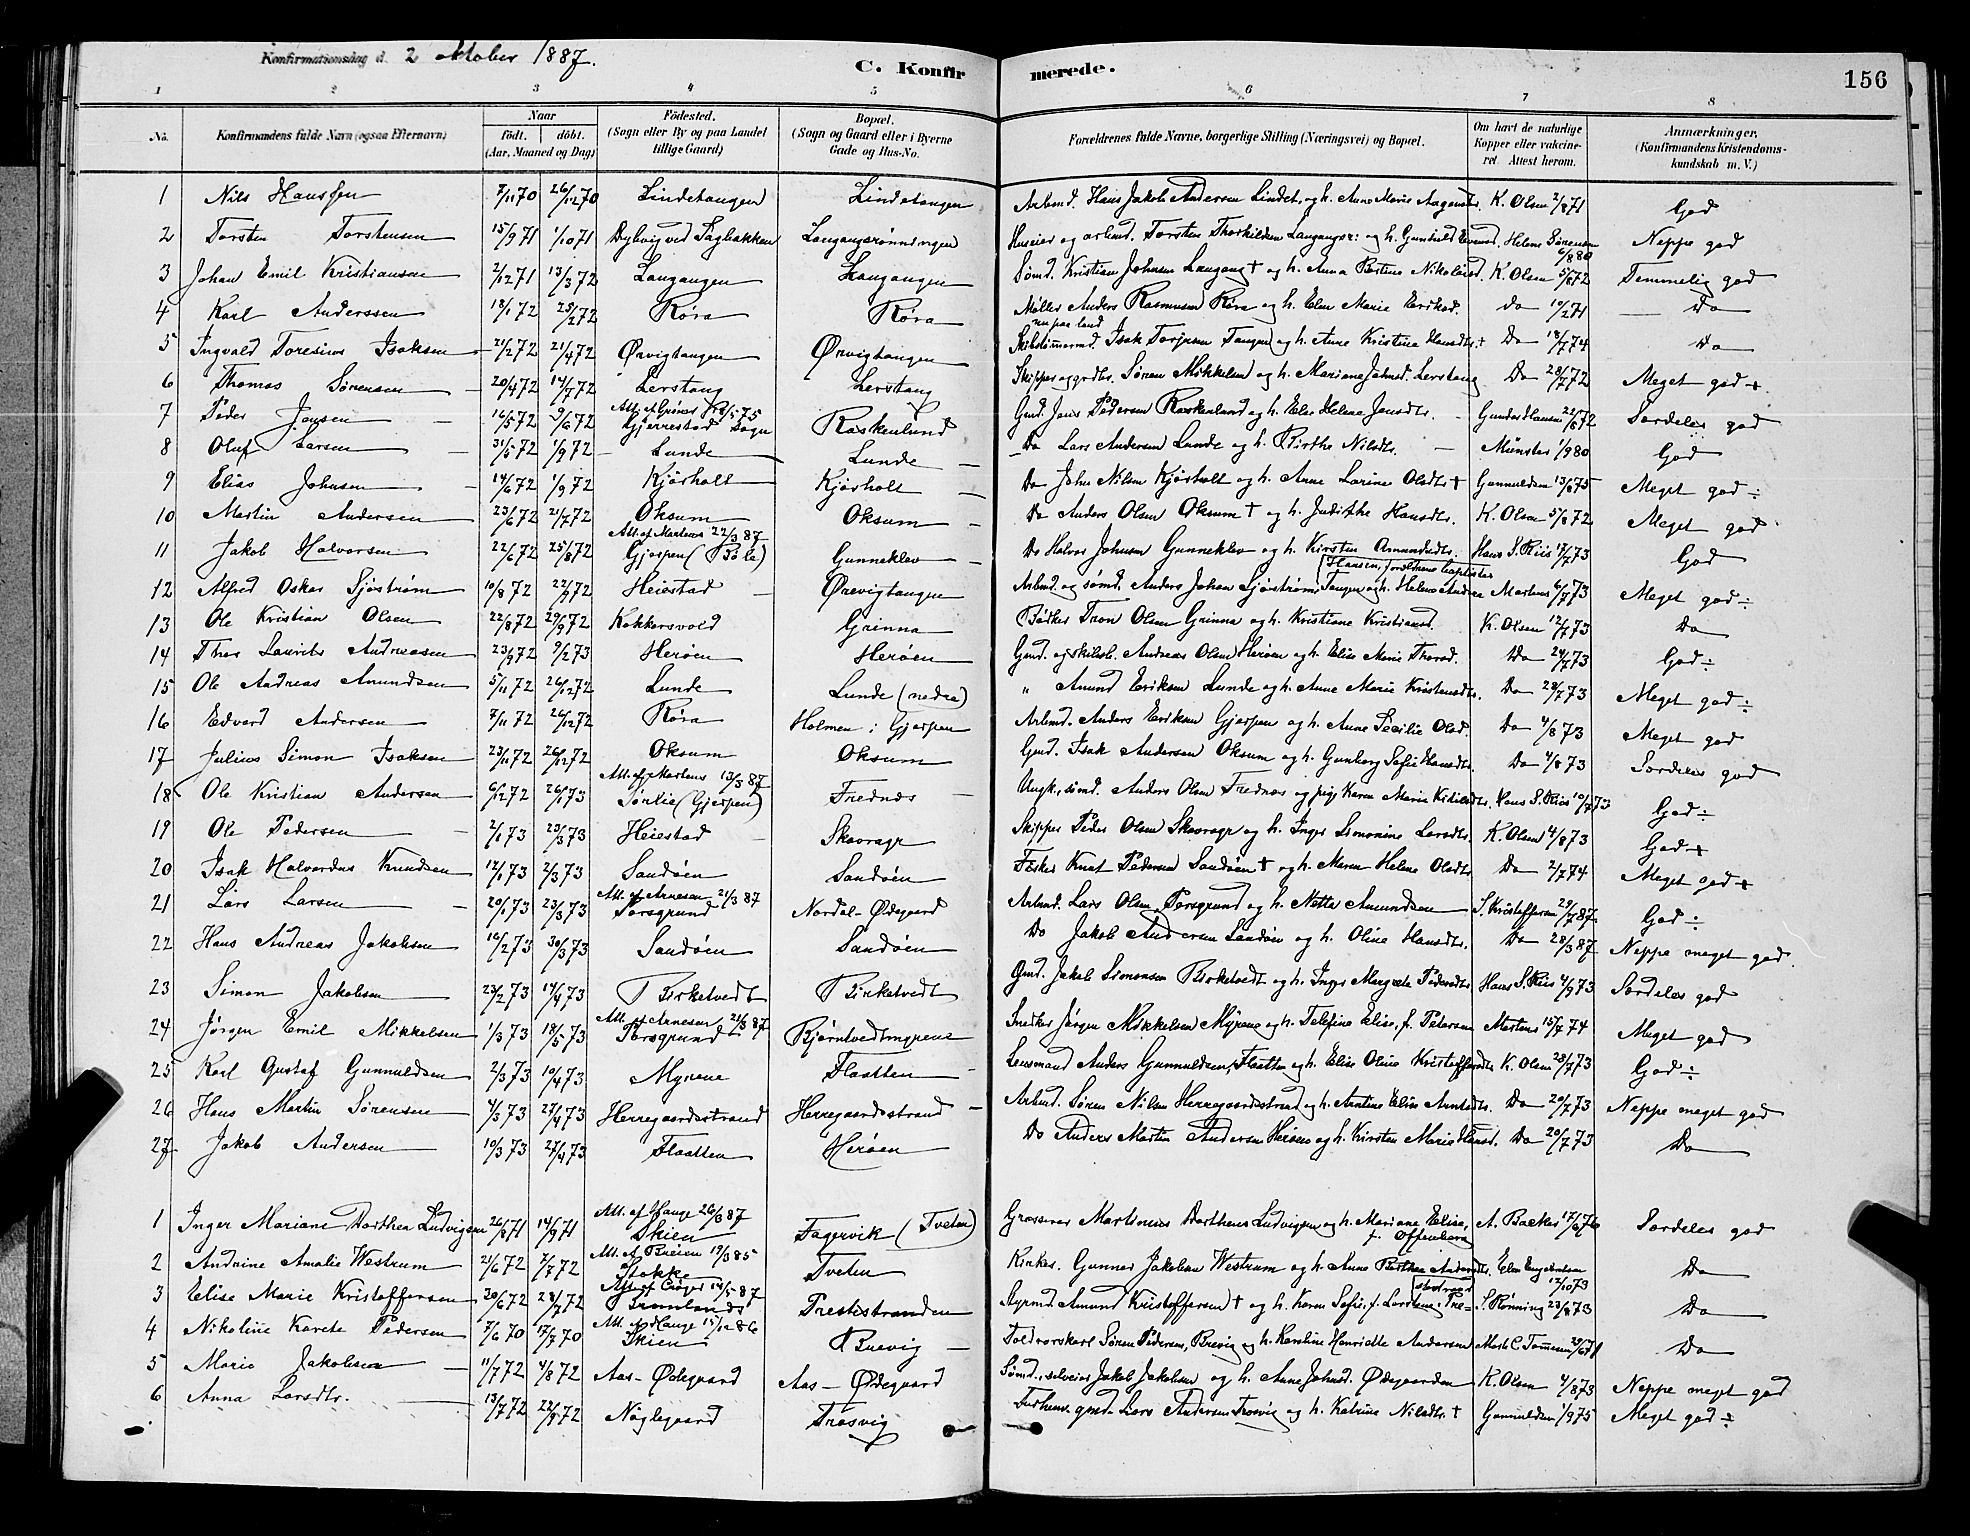 Konfirmationsdag d. 2 oktober 1887.
C. Konfirmerede.
156
1 2 3 4 5 6 7 8
No. Konfirmandens fulde Navn (ogsaa Efternavn) Naar födt. döbt. (Aar, Maaned og Dag) Födested. (Sogn eller By og paa Landet tillige Gaard) Bopæl. (Sogn og Gaard eller i Byerne Gade og Hus-No. Forældrenes fulde Navne, borgerlige Stilling (Næringsvei) og Bopæl. Om havt de naturlige Kopper eller vakcineret. Attest herom. Anmærkninger. (Konfirmandens Kristendomskundskab m. V.)
1 Nils Hanssen 7/11 70 26/12 70 Lindetangen Lindetangen Arbmd. Hans Jakob Andersen Lindet. og h. Anne Marie K. Olsen 2/8 71 God
2 Torsten Torstensen 15/9 71 1/10 71 Dybvig ved Sagbakken Langangsrønningen Huseier og arbmd. Torsten Thorkildsen Langangsr: og h. Gunhild Evensd. Helene Sørensen 6/8 80 Neppe god
3 Johan Emil Kristiansen 2/12 71 13/3 72 Langangen Langangen Sømd. Kristian Johnsen Langang + og h. Anna Bertine Nikolaisd. K. Olsen 5/6 72 Temmelig god
4 Karl Anderssen 18/1 72 25/2 72 Røra Røra Møller Anders Rasmussen Røra og h. Elen Marie Do 10/2 71 Do
5 Ingvald Toresius Isaksen 21/2 72 21/4 72 Ørvigtangen Ørvigtangen nu paa land Skibstømrmd. Isak Torjusen Tangen og h. Anne Kristine Hansdt. + Do 18/7 74 Do
6 Thomas Sørensen 20/4 72 14/7 72 Lerstang Lerstang Skipper og grdbr. Søren Mikkelsen og h. Mariane Johnsd. Lerstang Do 28/7 72 Meget god +
7 Peder Jensen 16/5 72 9/6 72 Gjerrestad Sogn Raskenlund Gmd. Jens Pedersen Raskenlund og h. Elen Helene Jensdt. Gunder Hansen 22/6 72 Særdeles god
8 Oluf Larsen 31/5 72 1/9 72 Lunde Lunde Do Lars Andersen Lunde og h. Birthe Nilsdt. Münster 1/9 80 God
9 Elias Johnsen 14/6 72 1/9 72 Kjørholt Kjørholt Do John Nilsen Kjørholt og h. Anne Larine Olsdt + Gunnuldsen 13/6 75 Meget god ÷
10 Martin Andersen 23/6 72 21/7 72 Oksum Oksum Do Anders Olsen Oksum + og h. Judithe Hansdt. K. Olsen 5/8 72 Meget god
11 Jakob Halvorsen 22/6 72 25/8 72 Att. af Martens 22/3 87 Gjerpen (Bøle) Gunneklev Do Halvor Johnsen Gunneklev og h. Kirsten Amundsdt. Hans S. Riis 17/7 73 God
12 Alfred Oskar Sjøstrøm 10/8 72 22/9 72 Heiestad Ørvigtangen Arbmd. og sømd. Anders Johan Sjøstrøm Tangen og h. Helene Andrea Hansen, forældrene baptister Martens 6/7 73 Meget god ÷
13 Ole Kristian Olsen 22/8 72 29/9 72 Kokkersvold Grinna Bødker Tron Olsen Grinna og h. Kristiane Kristiansd. K. Olsen 12/7 73 Do
14 Thor Laurits Andreasen 23/9 72 9/2 73 Herøen Herøen Gmd. og skibsb. Andreas Olsen Herøen og h. Elise Marie Thorsd. Do 24/7 73 God ÷
15 Ole Andreas Amundsen 5/11 72 26/12 72 Lunde Lunde (nedre) " Amund Eriksen Lunde og h. Anne Marie Kristensdt. Do 28/7 73 Meget god ÷
16 Edvard Andersen 7/11 72 26/12 72 Røra Holmen i Gjerpen Arbmd. Anders Eriksen Gjerpen og h. Anne Cecilie Olsd. Do 4/8 73 Meget god
17 Julius Simon Isaksen 23/11 72 26/12 72 Oksum Oksum Gmd. Isak Andersen Oksum og h. Gunborg Sofie Hansdt. Do 4/8 73 Særdeles god
18 Ole Kristian Andersen 6/12 72 26/1 73 Att. af Martens 13/3 87 Sørlie (Gjerpen) Frednes Ungk., sømd. Anders Olsen Frednes og pige Karen Marie Kittilsdt. Hans S. Riis 10/7 73 God ÷
19 Ole Pedersen 2/1 73 23/3 73 Heiestad Skavragr Skipper Peder Olsen Skavragr og h. Inger Simonine Larsdt. K. Olsen 4/8 73 God +
20 Isak Halvordus Knudsen 12/1 73 2/3 73 Sandøen Sandøen Fisker Knut Pedersen Sandøen + og h. Maren Helene Olsdt. Do 2/7 74 Meget god +
21 Lars Larsen 20/1 73 23/3 73 Att. af Arnesen 21/3 87 Porsgrund Nordal-Ødegaard Arbmd. Lars Olsen Porsgrund og h. Netta Amundsen S. Kristoffersen 29/7 87 God ÷
22 Hans Andreas Jakobsen 16/2 73 30/3 73 Sandøen Sandøen Do Jakob Andersen Sandøen og h. Oline Hansdt. Do 28/3 87 Neppe meget god.
23 Simon Jakobsen 23/2 73 14/4 73 Birketvedt Birketvedt Gmd. Jakob Simonsen Birketvedt og h. Inger Margrete Pedersdt. Hans S. Riis 4/9 73 Særdeles god
24 Jørgen Emil Mikkelsen 1/3 73 18/5 73 Att. af Arnesen 21/3 87 Porsgrund Bjørntvedtmyrene Snedker Jørgen Mikkelsen Myrene og h. Telefine Elise, f. Petersen Martens 15/7 74 Meget god
25 Karl Gustaf Gunnuldsen 2/3 73 10/4 73 Myrene Flaatten Lensmand Anders Gunnuldsen, Flaatten og h. Elise Oline Kristoffersdt. K. Olsen 28/7 73 God ÷
26 Hans Martin Sørensen 4/3 73 27/4 73 Herregaardsstrand Herregaardsstrand Arbmd. Søren Nilsen Herregaardsstrand og h. Antine Elise Arntsdt. Do 20/7 73 Neppe meget god
27 Jakob Andersen 10/3 73 27/4 73 Flaatten Herøen Do Anders Martin Andersen Herøen og h. Kirsten Marie Hansd. Do 20/7 73 Do
1 Inger Mariane Dorthea Ludvigsen 26/8 71 14/9 71 Att. af Hauge 26/3 87 Skien Fagervik (Tveten) Grosserer Martinius Dorthenus Ludvigsen og h. Mariane Elise, f. Offenberg A. Backer 17/6 76 Særdeles god
2 Andrine Amalie Westrum 21/6 72 7/7 72 Att. af Breien 19/3 85 Stokke Tveten Kirkes. Gunnar Jakobsen Westrum og h. Anne Berthea Andersdt. Elen Engebretsen 12/10 73 Do
3 Elise Marie Kristoffersen 20/6 72 28/7 72 Att. af Crøger 14/5 87 Bramlands Prestestranden Styrmd. Amund Kristoffersen + og h. Karen Sofie, f. Larsen: Prestestrand S. Rønning 23/8 73 Do
4 Nikoline Karete Pedersen 7/6 70 17/7 70 Att. af Hauge 15/12 86 Skien Brevig Toldrorskarl Søren Pedersen, Brevig og h. Karoline Henriette Andersen 29/6 71 Do
5 Marie Jakobsen 11/7 72 4/8 72 Aas-Ødegaard Aas-Ødegaard Sømd., selveier Jakob Jakobsen og h. Anne Johnsd. Ødegaarden K. Olsen 4/8 73 Neppe meget god
6 Anna Larsdt. 13/7 72 22/9 72 Nøglegaard Trosvig Forhenv. gmd. Lars Andersen Trosvig og h. Katrine Nilsdt. + Gunnuldsen 1/9 75 Meget god ÷